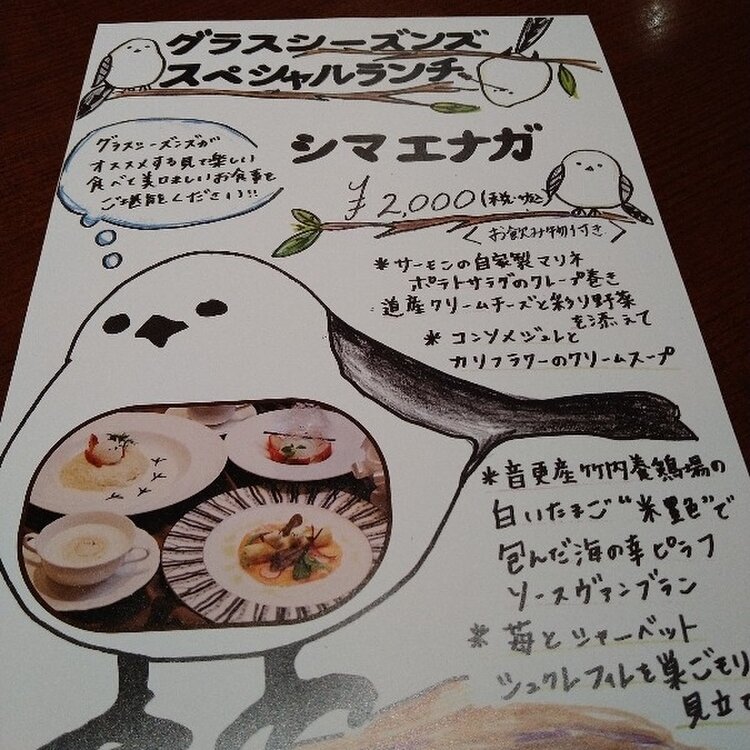 グラスシーズンズ
スペシャルランチ
グラスシーズンズが
オススメする見て楽しい
食べて美味しいお食事を
ご堪能ください!!
シマエナガ
¥2,000(税・サ込)
<お飲み物付き>
*サーモンの自家製マリネ
ポテトサラダのクレープ巻き
道産クリームチーズと彩り野菜
を添えて
*コンソメジュレと
カリフラワーのクリームスープ
*音更産竹内養鶏場の
白いたまご"米艶"で
包んだ海の幸ピラフ
ソースヴァンブラン
*苺とシャーベット
シュクレフィレを巣ごもり
見立て